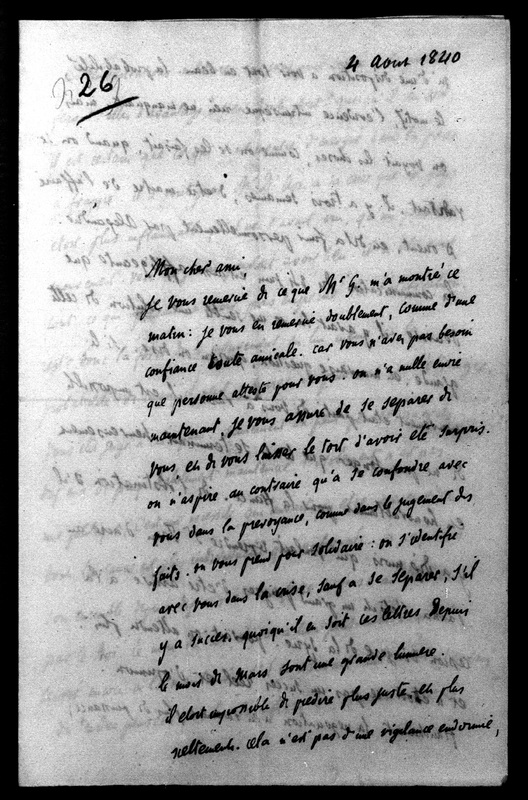 4 Aout 1840
26
Mon cher ami,
Je vous remercie de ce que Mr G. m'a montré ce
matin: je vous en remercie doublement, comme d'une
confiance toute amicale. car vous n'avez pas besoin
que personne atteste pour vous. on n'a nulle envie
maintenant, je vous assure de se separer de
vous, en de vous laisser le tort d'avoir eté surpris.
on n'aspire au contraire qu'à se confondre avec
vous dans la prevoyance, comme dans le jugement des
faits. on vous prend pour solidaire: on s'identifie
avec vous dans la crise, sauf a se separer, s'il
y a succès. quoiqu'il en soit ces lettres depuis
le mois de Mars sont une grande lumiere.
il etoit impossible de predire plus juste, en plus
nettement. cela n'est pas d'une vigilance endormie,